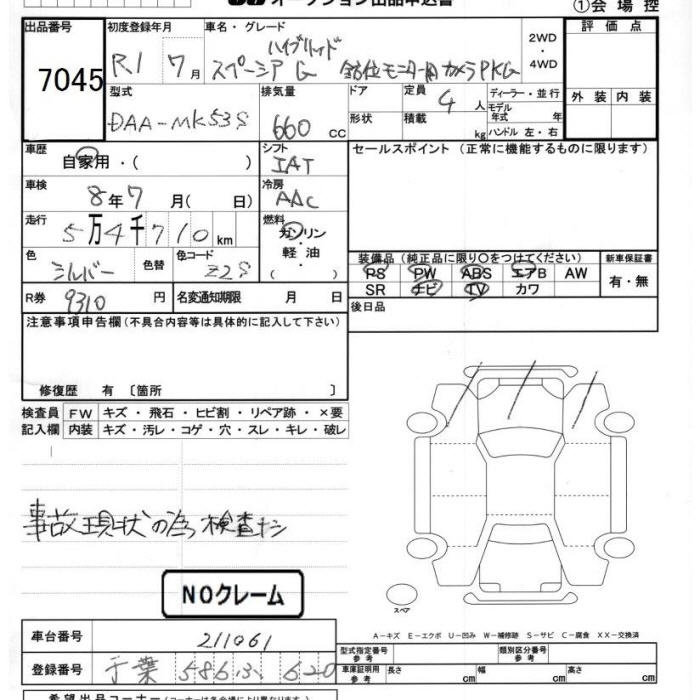 オークション出品申込書
①会場控
出品番号 7045
初度登録年月 R1 7月
車名・グレード
ハイブリッド
スペーシア G 全方位モニター用カメラPKG
2WD・4WD
評価点
外装 内装
型式
DAA-MK53S
排気量 660 cc
ドア
形状
定員 4人
積載 kg
ディーラー・並行
モデル年式 年
ハンドル 左・右
車歴 自家用・( )
シフト IAT
セールスポイント (正常に機能するものに限ります)
車検 8年7月( 日)
冷房 AAC
走行 5万4千710km
燃料 ガソリン・軽油
色 シルバー 色替
色コード Z2S
装備品 (純正品に限り〇をつけてください)
新車保証書
PS PW ABS エアB AW
SR ナビ TV カワ
有・無
R券 9310 円
名変通知期限 月 日
後日品
注意事項申告欄 (不具合内容等は具体的に記入して下さい)
修復歴 有 〔箇所 〕
検査員記入欄
FW キズ・飛石・ヒビ割・リペア跡・×要
内装 キズ・汚レ・コゲ・穴・スレ・キレ・破レ
事故現状の為検査ナシ
NOクレーム
スペア
A-キズ E-エクボ U-凹み W-補修跡 S-サビ C-腐食 XX-交換済
車台番号 211061
型式指定番号 参考
類別区分番号 参考
登録番号 千葉 586 620
車庫証明用参考 長さ cm 幅 cm 高さ cm
希望出品コーナー